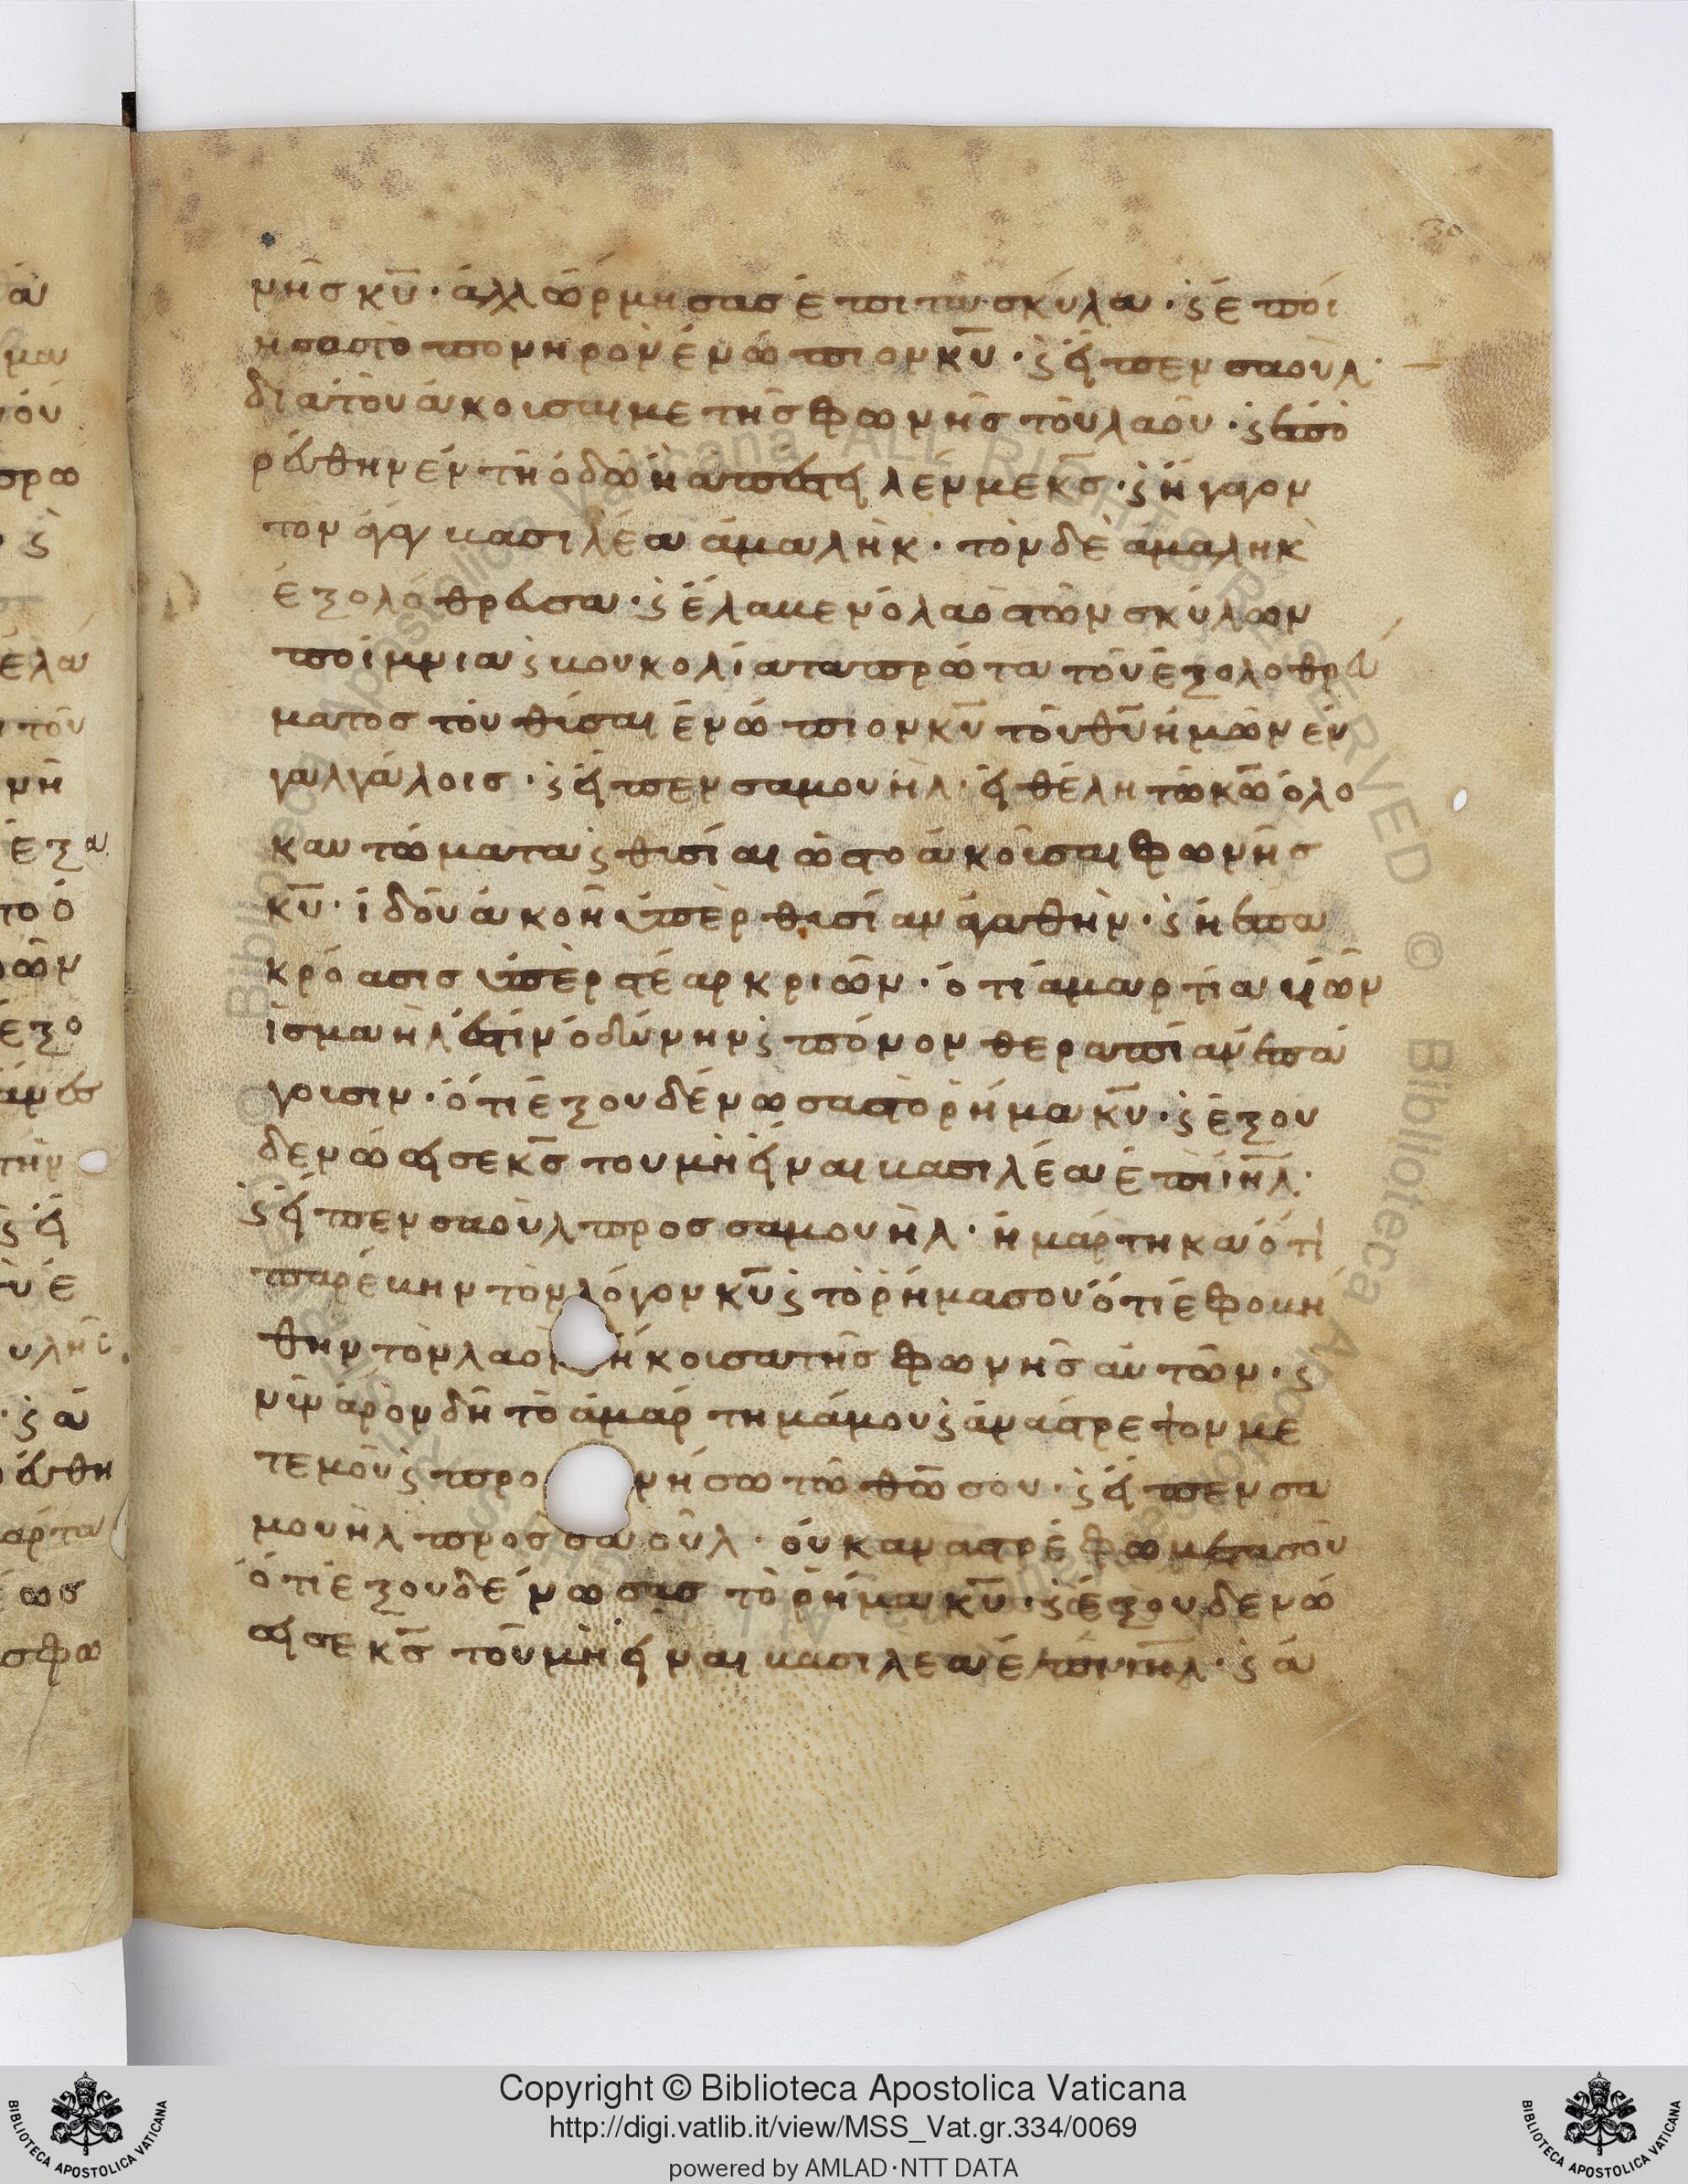 μῆσ κ̅υ̅· ἀλλ ὥρμησασ ἐπι τα σκύλα· ϗ ἐποί
ησασ τὸ πονηρὸν ἐνώπιον κ̅υ̅· ϗ εἶπεν σαοὺλ·
διατὸ ἀκοῦσαί με τῆσ φωνῆσ τοῦ λαοῦ· ϗ ἐπο
ρεύθην ἐν τῆ ὁδῶ ἧ ἀπέστειλέν με κ̅σ̅· ϗ ἤγαγον
τον ἀγὰγ βασιλέα ἀμαλὴκ· τὸν δὲ ἀμαλὴκ
ἐξολόθρευσα· ϗ ἔλαβεν ὁ λαὸσ τῶν σκύλων
ποίμνια ϗ βουκολία τα πρῶτα τοῦ ἐξολοθρεύ
ματοσ τοῦ θύσαι ἐνώπιον κ̅υ̅ τοῦ θ̅υ̅ ἡμῶν ἐν
γαλγάλοισ· ϗ εἶπεν σαμουὴλ· εἰ θέλη τῶ κ̅ω̅ ὁλο
καυτώματα ϗ θυσίαι ὡσ τὸ ἀκοῦσαι φωνῆσ
κ̅υ̅· ἰδοῦ ἀκοῆ ὑπὲρ θυσίαν ἀγαθὴν· ϗ ἡ ἐπα
κρόασισ ὑπὲρ στέαρ κριῶν· ὅτι ἁμαρτία οἰων
ισμα ἡλ ἐστὶν ὀδύνην ϗ πόνον θεραπίαν ἐπά
γουσιν· ὅτι ἐξουδένωσασ τὸ ῥῆμα κ̅υ̅· ϗ ἐξου
δενώσει σε κ̅σ̅ του μὴ εἶναι βασιλέα ἐπὶ ι̅η̅λ̅·
ϗ εἶπεν σαοὺλ προσ σαμουὴλ· ἡμάρτηκα ὅτι
παρέβην τὸν λόγον κ̅υ̅ ϗ τὸ ῥῆμα σου ὅτι ἐφοβή
θην τὸν λαὸν ἤκουσα τῆσ φωνῆσ αὐτῶν· ϗ
νῦν ἆρον δὴ τὸ ἁμάρτημά μου ϗ ἀνάστρεψον με
τεμοῦ ϗ προ νήσω τῶ θ̅ω̅ σου· ϗ εἶπεν σα
μουὴλ προσ σαοὺλ· οὐκ αναστρέφω μετα σοῦ
ὅτι ἐξουδένωσασ τὸ ῥῆμα κ̅υ̅· ϗ ἐξουδενώ
σει σε κ̅σ̅ τοῦ μὴ εἶναι βασιλεα ἐπὶ ι̅η̅λ̅· ϗ ἀ
Copyright © Biblioteca Apostolica Vaticana
http://digi.vatlib.it/view/MSS_Vat.gr.334/0069
powered by AMLAD·NTT DATA
BIBLIOTECA APOSTOLICA VATICANA
BIBLIOTECA APOSTOLICA VATICANA